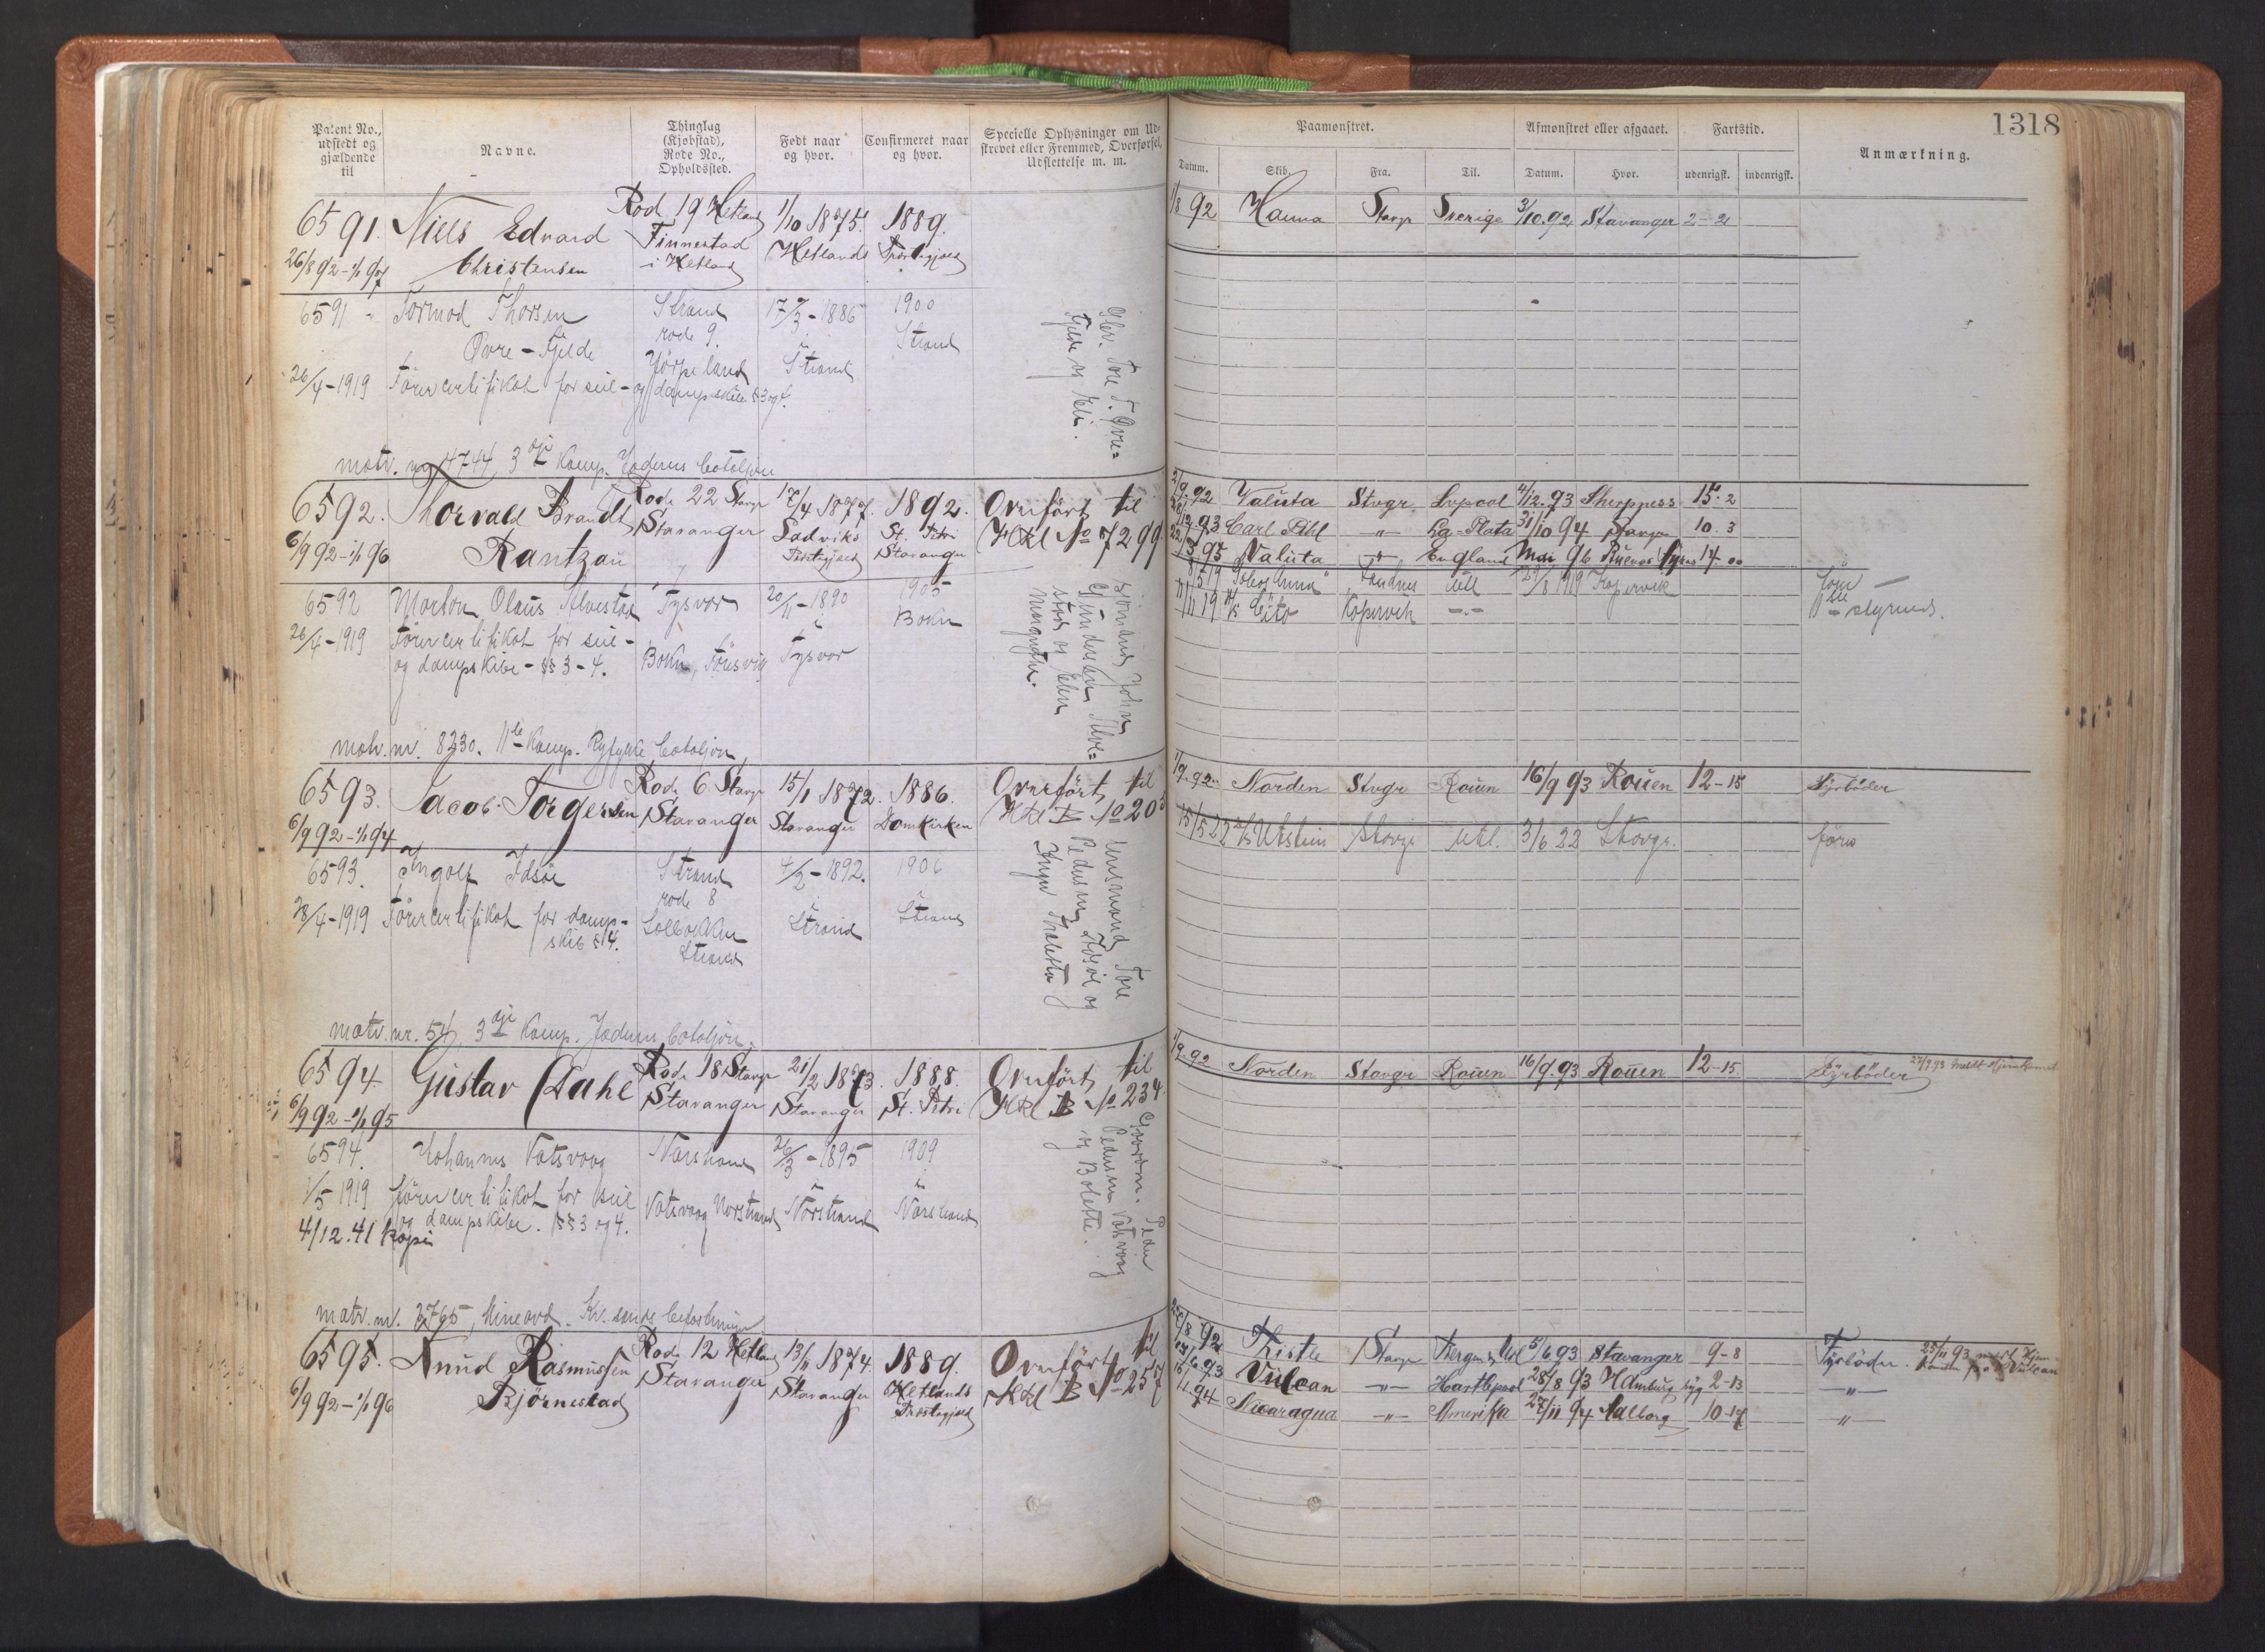 1318
Patent No., udstedt og gjældende til
Navne.
Thinglag (Kjøbstad), Rode No., Opholdssted.
Født naar og hvor.
Confirmeret naar og hvor.
Specielle Oplysninger om Udskrevet eller Fremmed, Overførsel, Udslettelse m. m.
Paamønstret.
Afmønstret eller afgaaet.
Fartstid.
Anmærkning.
Datum. Skib. Fra. Til. Datum. Hvor. udenrigsk. indenrigsk.
6591. Niels Edvard Rod 19 Hetland 1/10 1875. 1889.
26/8 92 - 1/1 97 Christensen Finnestad i Hetland Hetlands Præstegjæld
1/8 92 Hanna Stavgr Sverige 3/10.92 Stavanger 2-2
6591 Tormod Thorsen Strand 17/3 - 1886 1900
Øvre-Fjelde rode 9. Strand
Jørpeland Strand
26/4-1919 Förercertifikat for seil- og dampskibe § 3 og 4.
Tore T. Øvre=
Fjelde og Eli.
matr. no 4744, 3die Komp. Jæderens bataljon
6592. Thorvald Brandt Rode 22 Stavgr 17/4 1877. 1892. Overført til
6/9 92 - 1/1 96 Rantzau Stavanger Ladviks Præstegjæld St. Petri Stavanger Hkl No 7299
2/9.92 Valuta Stvgr. Lvpool 4/12.93 Sherpness 15.2
93 Carl Pihl -"- La-Plata 31/10 94 Stavgr 10.3
95 Valuta -"- England Mai 96 Buenos Ayres 14-00
6592 Morton Olaus Alvestad Tysvær 20/11-1890 1905
Bokn
26/4-1919 Förercertifikat for seil- Tysvær
og dampskibe - §§ 3-4. Bokn, Föresvig
8/5 19 Sandnes Utl 29/8 1919 Kopervik
11/11 19 Cito Kopervik -"-
styrmd.
John
Gundersen Alve=
stad og Elen
Margrethe.
matr. nr. 8230. 11te Komp. Ryfylke bataljon
6593. Jacob Torgersen Rode 6 Stavgr 15/1 1872. 1886. Overført til
6/9 92 - 1/1 94 Stavanger Stavanger Domkirken Hkl B No 205
1/9.92 Norden Stvgr Rouen 16/9 93 Rouen 12-15 Fyrböder
15/5 22 Utstein Stavgr Utl. 3/6 22 Stavgr. fører
6593. Ingolf Idsøe Strand 4/2-1892. 1906
rode 8
28/4-1919 Förercertifikat for damp- Solbakken Strand Strand
skib § 4. Strand
Tore
Pedersen Idsøe og
matr. nr. 54, 3die Komp. Jæderens bataljon.
6594 Gustav Dahl Rode 18 Stavgr 21/2 1873. 1888. Overført til
6/9 92 - 1/1 95 Stavanger Stavanger St. Petri Hkl B No 234.
1/9.92 Norden Stavgr Rouen 16/9.93 Rouen 12-15 Fyrböder 27/9 93 meldt hjemkomst
6594. Johannes Vatsvaag Nærstrand 26/3-1895 1909
1/5 1919 Förercertifikat for seil Vatsvaag Nærstrand Nærstrand Nærstrand
og dampskibe. §§ 3 og 4.
4/12.41 kopi
Gaardm. Peder
Pedersen Vatsvaag
og Bolette.
matr. nr. 2765, Mineavd. Kr.sands befæstninger
6595. Knud Rasmussen Rode 12 Hetland 13/11 1874. 1889. Overført til
6/9 92 - 1/1 96 Bjørnestad Stavanger Stavanger Hetlands Præstegjæld Hkl B No 257
92 Thistle Stavgr Bergen & Utl 5/6.93 Stavanger 9-8 Fyrböder. 25/11 93 Vulcan
93 Vulcan -"- Hartlepool 28/8 93 Hamburg 2-13 -"-
94 Nicaragua -"- Amerika 27/11 94 Aalborg 10-17 -"-